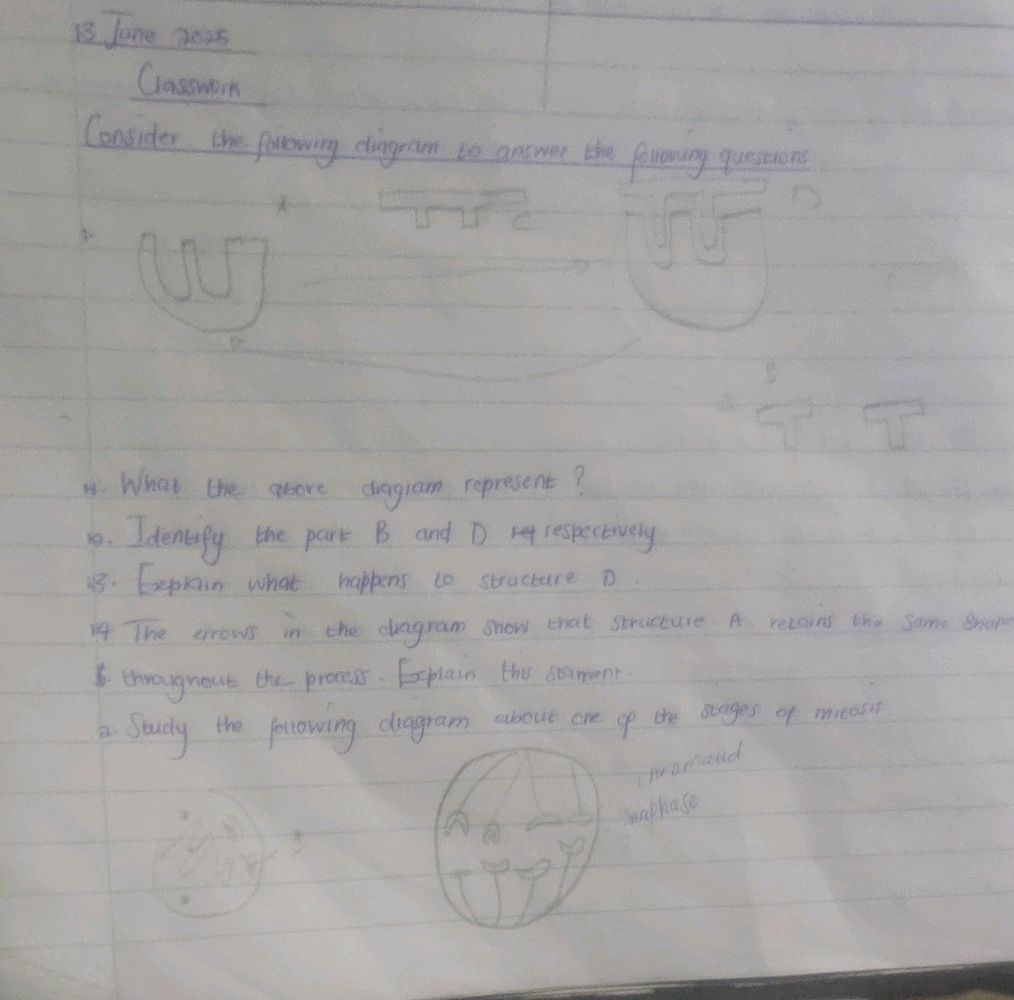 13 June 2025
Classwork
Consider the following diagram to answer the following questions
A
C
D
B
What the above diagram represent ?
Identify the part B and D respectively
13. Explain what happens to structure D.
14 The errows in the diagram show that structure A retains the same shape
throughout the process. Explain this stament.
2. Study the following diagram about one of the stages of mitosis
chromatid
anaphase